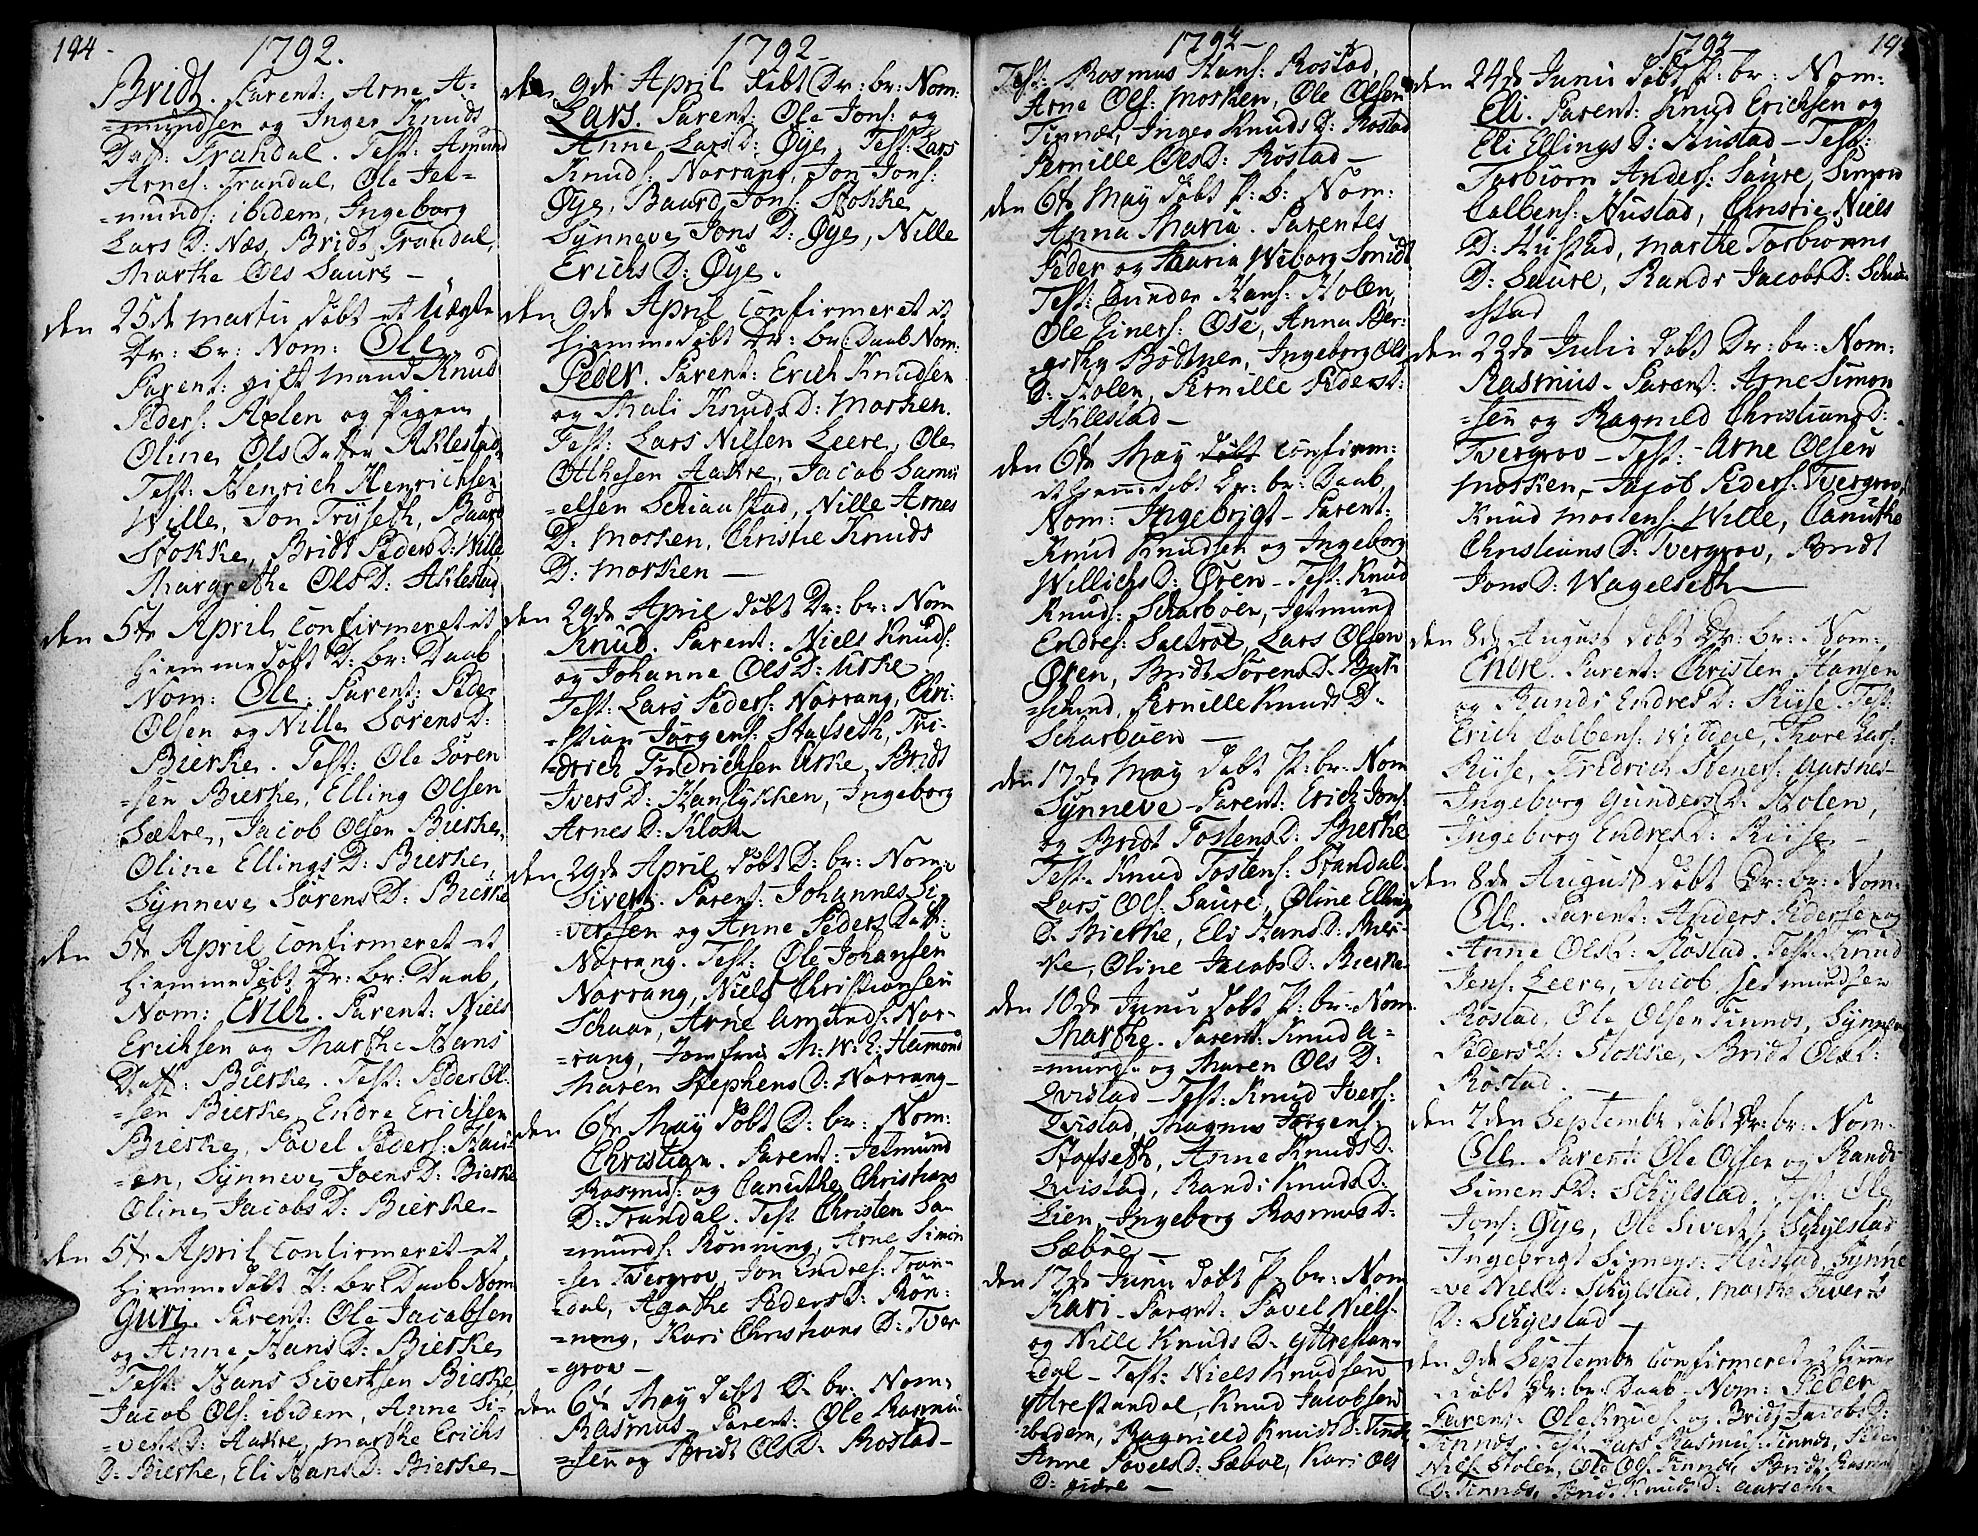 194
1792.
Bridt. Parent: Arne A-
=mundsen og Inger Knuds
Datt: Trandal. Test: Amund
Arnes: Trandal, Ole Jet-
=munds: ibidem, Ingeborg
Lars D: Næs, Bridt Trandal,
Marthe Ols Saure -
den 25de Martii døbt et Uægte
Dr: br: Nom: Ole
Parent: gift Mand Knud
Peders: Aslen og Pigen
Oline Ols Datter Aklestad
Test: Henrich Henrichsen
Wille, Jon Tryseth, Baard
Stokke, Bridt Peders D: Wille
Margrethe Ols D: Aklestad
den 5te April Confirmeret et
hiemmedøbt D: br: Daab
Nom: Ole. Parent: Peder
Olsen og Nille Sørens D:
Bierke. Test: Ole Søren
=sen Bierke, Elling Olsen
Sætre, Jacob Olsen Bierke,
Oline Ellings D: Bierke
Synneve Sørens D: Bierke
den 5te April Confirmeret et
hiemmedøbt Dr: br: Daab
Nom: Erich. Parent: Niels
Erichsen og Marthe Hans
Datt: Bierke. Test: Peder Ol-
=sen Bierke, Endre Erichsen
Bierke, Povel Peders: Haui-
=en, Synneve Joens D: Bierke
Oline Jacobs D: Bierke -
den 5te April Confirmeret et
hiemmedøbt P: br: Daab Nom
Guri. Parent: Ole Jacobsen
og Anne Hans D: Bierke
Test: Hans Sivertsen Bierke,
Jacob Ols: ibidem, Anne Si-
=verts D: Aakre, Marthe Erichs
D: Bierke, Eli Hans D: Bierke -
1792
den 9de April døbt Dr: br: Nom:
Lars. Parent: Ole Jons: og
Anne Lars D: Øye, Test: Lars
Knuds: Norrang, Jon Jons:
Øye, Baard Jons: Stokke
Synneve Jons D: Øye, Nille
Erichs D: Øye.
den 9de April Confirmeret et
hiemmedøbt Dr: br: Daab Nom:
Peder. Parent: Erich Knudsen
og Mali Knuds D: Morken.
Test: Lars Nilsen Leere, Ole
Otthesen Aakre, Jacob Samu
=elsen Schiaastad, Nille Arnes
D: Morken, Christie Knuds
D: Morken -
den 29de April døbt Dr: br: Nom
Knud. Parent: Niels Knuds:
og Johanne Ols D: Urke
Test: Lars Peders: Norrang, Chri-
=stian Jørgens: Stafseth, Fri-
=drich Fridrichsen Urke, Bridt
Ivers D: Hanlykken, Ingeborg
Arnes D: Klok
den 29de April døbt D: br: Nom:
Sivert. Parent: Johannes Si-
=vertsen og Anne Peders Datt:
Norrang. Test: Ole Johansen
Norrang, Niels Christiansen
Schaar, Arne Amunds: Nor-
=rang, Jomfrue M: W: E: Heimond
Maren Stephens D: Norrang -
den 6te May døbt D: br: Nom:
Christian. Parent: Jetmund
Rasmus: og Canuthe Christians
D: Trandal. Test: Christen Sa-
=munds: Rønning, Arne Simon
=sen Tvergrov, Jon Endres: Tran-
=dal, Agathe Peders D: Røn-
=ning, Kari Christians D: Tver
=grov -
den 6te May døbt D: br: Nom:
Rasmus. Parent: Ole Rasmu-
=sen og Bridt Ols D: Rostad -
1792 -
Test: Rasmus Hans: Rostad,
Arne Ols: Morken, Ole Olsen
Tinnæs, Inger Knuds D: Rostad
Pernille Ols D: Rostad -
den 6te May døbt P: b: Nom:
Anna Maria. Parentes
Peder og Maria Wiborg Smidt
Test: Gunder Hans: Holen,
Ole Einers: Ose, Anna Ber-
=githe Bødtner, Ingeborg Ols
D: Holen, Pernille Peders D:
Aklestad -
den 6te May døbt Confirm:
et hiemmedøbt Dr: br: Daab
Nom: Ingebrigt - Parent:
Knud Knudsen og Ingeborg
Willichs D: Øren - Test: Knud
Knuds: Scharbøen, Jetmund
Endres: Sætrøe, Lars Olsen
Øren, Bridt Sørens D: Birke-
=lund, Pernille Knuds D:
Scharbøen -
den 17de May døbt P: br: Nom
Synneve - Parent: Erich Jons:
og Bridt Tostens D: Bierke
Test: Knud Tostens: Standal
Lars Ols: Saure, Oline Elling
D: Bierke, Eli Hans D: Bier-
ke, Oline Jacobs D: Bierke
den 10de Junii døbt P: br: Nom
Marthe. Parent: Knud A-
=munds: og Maren Ols D:
Qvistad - Test: Knud Ivers:
Qvistad, Magnus Jørgens:
Stafseth, Anne Knuds D:
Qvistad, Randi Knuds D:
Lien, Ingeborg Rasmus D:
Sæbøe -
den 17de Junii døbt P: br: Nom
Kari - Parent: Povel Niels-
og Nille Knuds D: Ytrestan-
=dal - Test: Niels Knudsen
Ytrestandal, Knud Jacobsen
ibidem, Ragnild Knuds D: Tinnæs
Anne Povels D: Sæboe, Kari Ols
D: Giære -
1792 -
den 24de Junii døbt P: br: Nom:
Eli. Parent: Knud Erichsen og
Eli Ellings D: Hustad - Test:
Torbiørn Anders: Saure, Simon
Colbens: Hustad, Christie Niels
D: Hustad, Marthe Torbiørns
D: Saure, Randi Jacobs D: Schiaa-
=stad
den 22de Julii døbt Dr: br: Nom:
Rasmus - Parent: Arne Simon
=sen og Ragnild Christians D:
Tvergrov - Test: Arne Olsen
Morken, Jacob Peders: Tvergrov,
Knud Mortens: Wille, Canuthe
Christians D: Tvergrov, Bridt
Jons D: Wagelseth -
den 8de August døbt Dr: br: Nom:
Endre. Parent: Christen Hansen
og Randi Endres D: Riise. Test:
Erich Colbens: Widdøe, Thore Lars:
Riise, Fredrich Steners: Aursnes
Ingeborg Gunders D: Holen,
Ingeborg Endres D: Riise -
den 8de August døbt Dr: br: Nom:
Ole. Parent: Anders Pedersen og
Anne Ols D: Rostad. Test: Knud
Jens: Leere, Jacob Jetmundsen
Rostad, Ole Olsen Tinnæs, Synneve
Peders D: Stokke, Bridt Ols D:
Rostad. -
den 2den Septembr døbt Dr: br: Nom:
Ole. Parent: Ole Olsen og Randi
Simens D: Schylstad. Test: Ole
Jons: Øye, Ole Siverts: Schylstad
Ingebrigt Simens: Hustad, Synne
=ve Niels D: Schylstad, Marthe Siverts
D: Schylstad -
den 9de Septembr Confirmeret et hiem-
døbt Dr: br: Daab - Nom: Peder
Parent: Ole Knuds: og Bridt Jacobs D:
Tinnæs, Test: Lars Rasmus: Tinnæs, Peder
Nils: Holen, Ole Ols: Tinnæs, Bridt Rasmus
D: Tinnæs, Knuds D: Aarseth